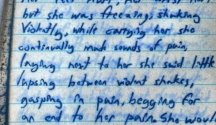 but she was freezing, shaking
violently, while carrying her she
continually made sounds of pain
laying next to her she said little
lapsing between violent shakes,
gasping in pain, begging for
an end to her pain. She would